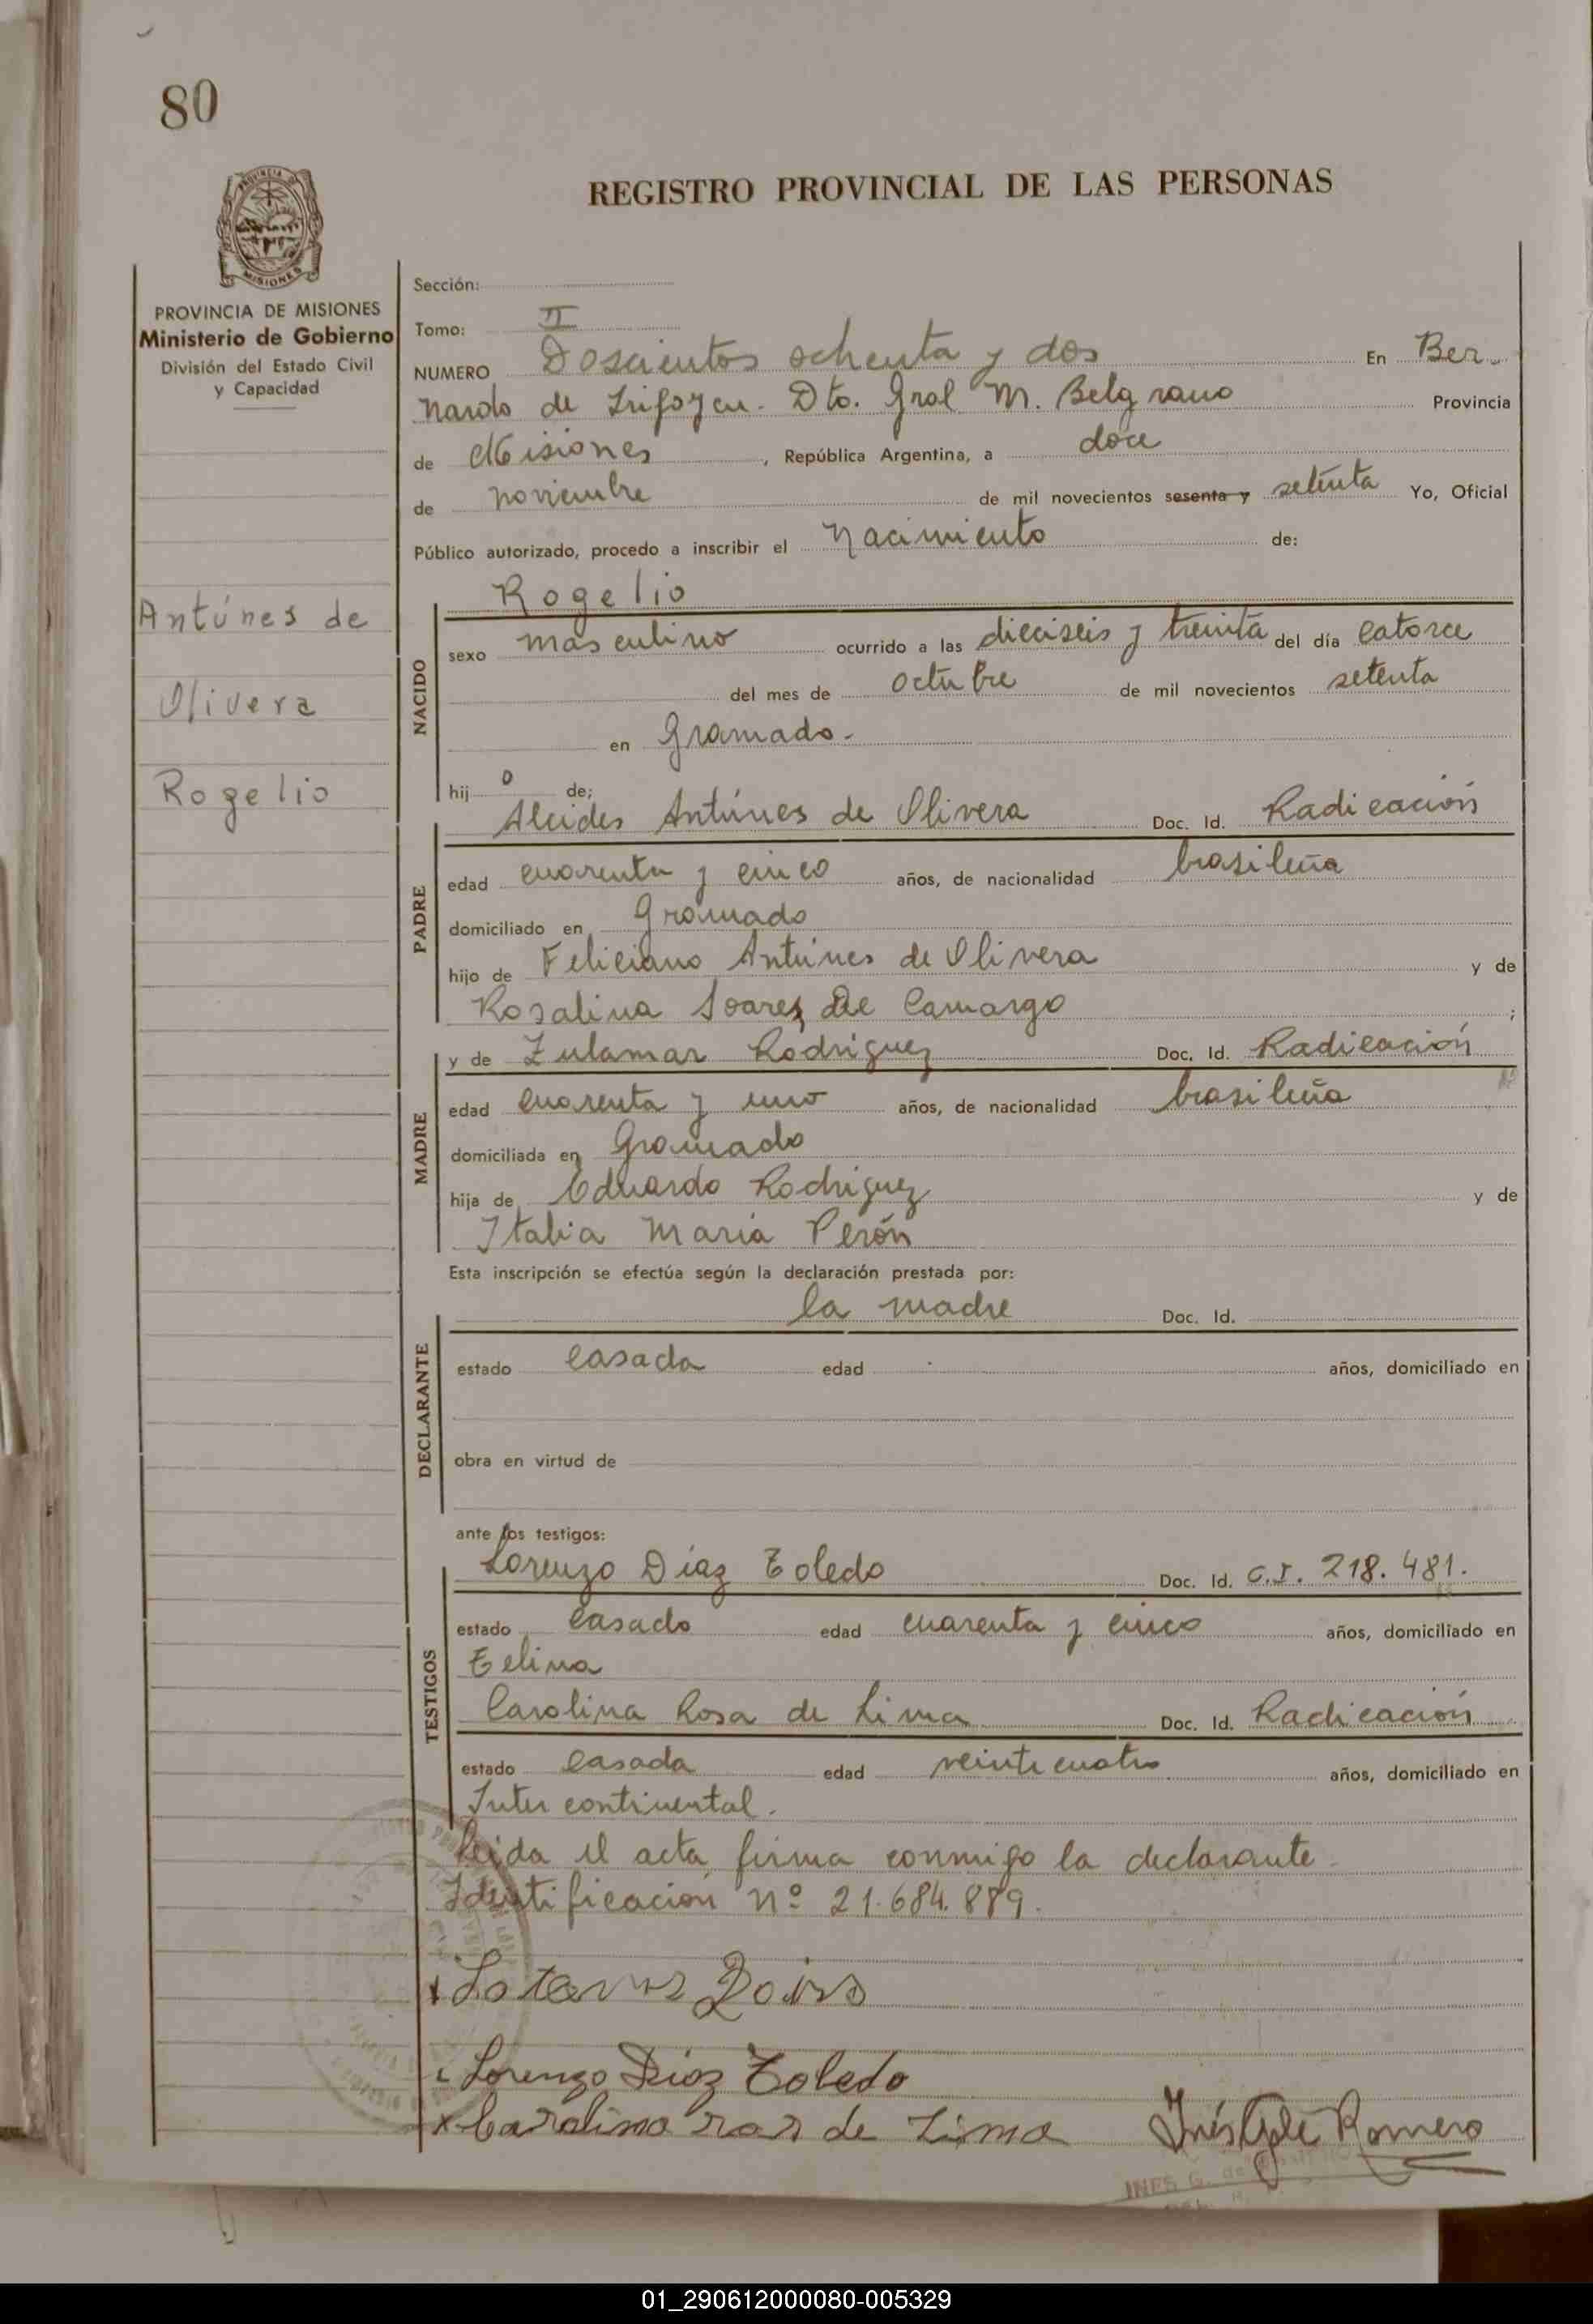 80
REGISTRO PROVINCIAL DE LAS PERSONAS
MISIONES
PROVINCIA DE MISIONES
Ministerio de Gobierno
División del Estado Civil
y Capacidad
Antúnes de
Olivera
Rogelio
Sección:
Tomo: II
NUMERO Doscientos ochenta y dos En Ber
nardo de Irigoyen. Dto. Gral M. Belgrano Provincia
de Misiones, República Argentina, a doce
de noviembre de mil novecientos sesenta y setenta Yo, Oficial
Público autorizado, procedo a inscribir el Nacimiento de:
Rogelio
NACIDO
sexo masculino ocurrido a las dieciseis y treinta del día catorce
del mes de octubre de mil novecientos setenta
en Gramado.
hijo de;
Alcides Antúnes de Olivera Doc. Id. Radicación
PADRE
edad cuarenta y cinco años, de nacionalidad brasileña
domiciliado en Gramado
hijo de Feliciano Antúnes de Olivera y de
Rosalina Soarez De Camargo ;
y de Zulamar Rodriguez Doc. Id. Radicación
MADRE
edad cuarenta y uno años, de nacionalidad brasileña
domiciliada en Gramado
hija de Eduardo Rodriguez y de
Italia Maria Perón
Esta inscripción se efectúa según la declaración prestada por:
la madre Doc. Id.
DECLARANTE
estado casada edad años, domiciliado en
obra en virtud de
ante los testigos:
Lorenzo Diaz Toledo Doc. Id. C.I. 218.481.
TESTIGOS
estado casado edad cuarenta y cinco años, domiciliado en
Celina
Carolina Rosa de Lima Doc. Id. Radicación
estado casada edad veinticuatro años, domiciliado en
Inter continental.
Leida el acta firma conmigo la declarante.
Identificación nº 21.684.889.
Lorenzo Diaz Toledo
x Carolina roza de Lima
Inés G. de Romero
INES G. de
01_290612000080-005329